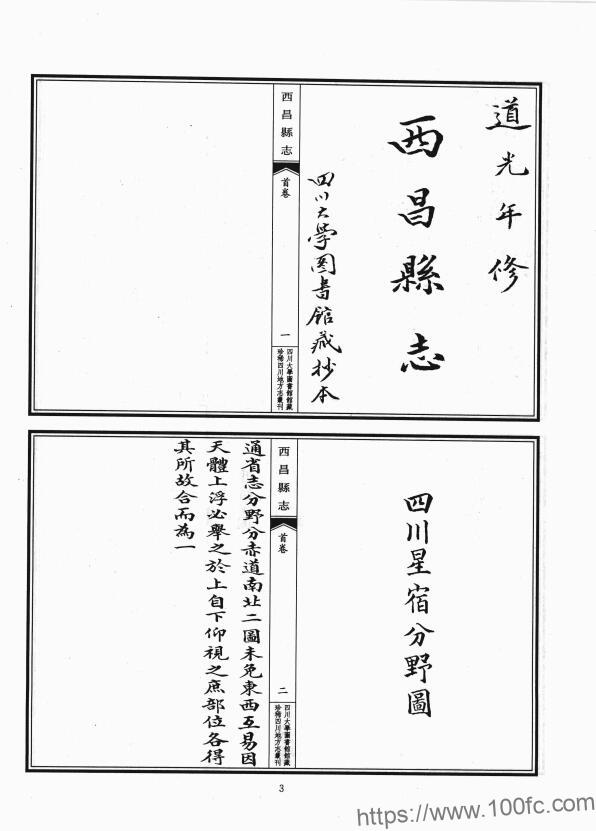 道光年修
西昌縣志
四川大學図書館藏抄本
西昌縣志
首卷
一
四川大學圖書館館藏
珍稀四川地方志叢刊
四川星宿分野圖
西昌縣志
首卷
二
四川大學圖書館館藏
珍稀四川地方志叢刊
通省志分野分赤道南北二圖未免東西互易因
天體上浮必舉之於上自下仰視之庶部位各得
其所故合而為一
3
https://www.100fc.com